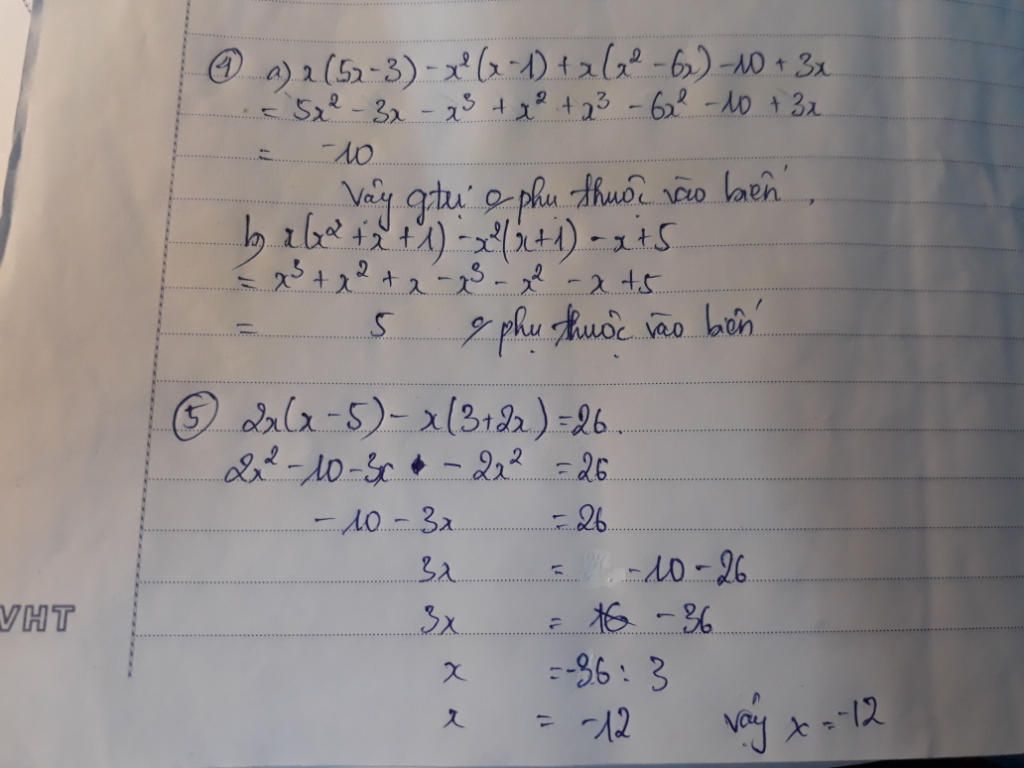 ④ a) x(5x-3) - x²(x-1) + x(x² - 6x) - 10 + 3x
= 5x² - 3x - x³ + x² + x³ - 6x² - 10 + 3x
= -10
Vậy gtrị o phụ thuộc vào biến.
b) x(x² + x + 1) - x²(x+1) - x + 5
= x³ + x² + x - x³ - x² - x + 5
= 5 o phụ thuộc vào biến
⑤ 2x(x - 5) - x(3+2x) = 26.
2x² - 10 - 3x - 2x² = 26
- 10 - 3x = 26
3x = - 10 - 26
3x = - 36
x = -36 : 3
x = -12 Vậy x = -12
VHT